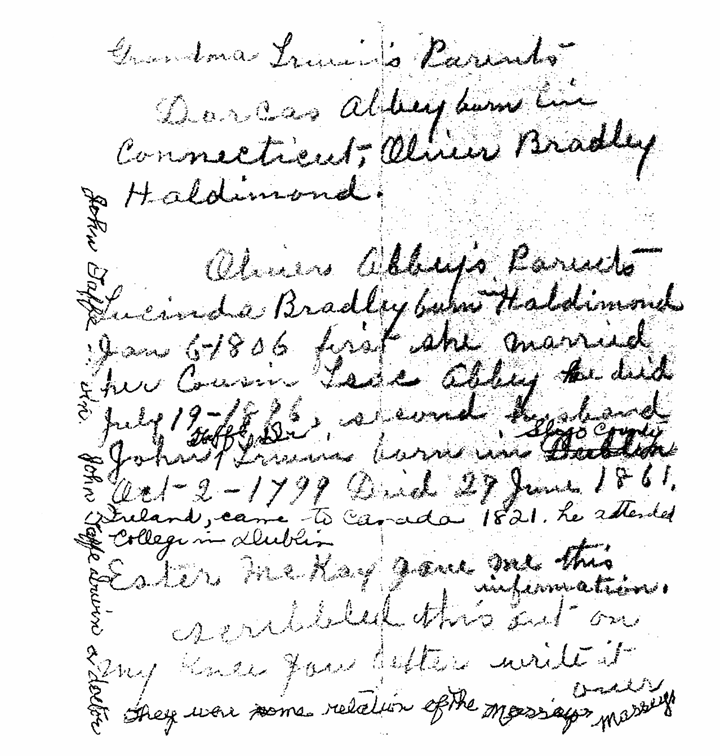 Grandma Irwin's Parents
Dorcas Abbey born in
Connecticut, Oliver Bradley
Haldimond.
Olivers Abbey's Parents
Lucinda Bradley born Haldimond
Jan 6-1806 first she married
her Cousin Isac Abbey he died
July 19-1826, second husband
Taffe Dr. Sligo County
John Irwin born in Dublin
Oct-2-1799 Died 29 June 1861.
Ireland, came to Canada 1821. he attended
College in Dublin
Ester McKay gave me this
information.
scribbled this out on
my knee you better write it
over
They were some relation of the Masseys Masseys
John Taffe Dr. John Taffe Irwin a doctor